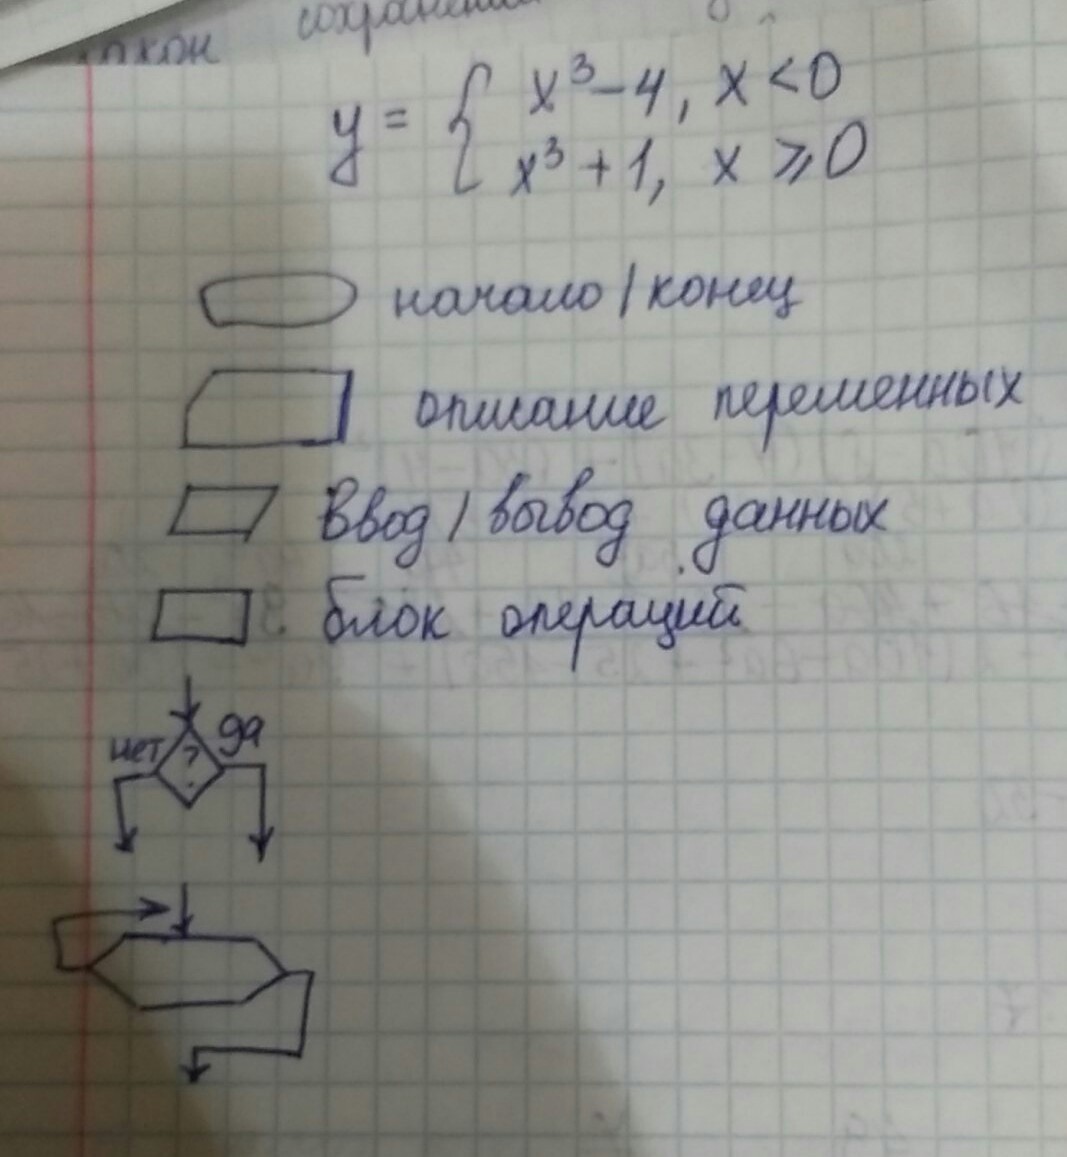 сохранени
y = { x³ - 4, x < 0
x³ + 1, x ⩾ 0
начало / конец
описание переменных
Ввод / вывод данных
блок операций
нет ? да